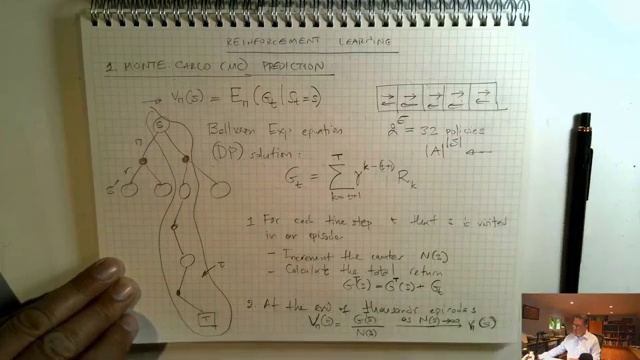 REINFORCEMENT LEARNING
1. MONTE-CARLO (MC) PREDICTION
→ V_π(s) = E_π(G_t | S_t = s)
Bellman Exp equation
(DP) solution:
2^5 = 32 policies
|A|^|S| ←
G_t = Σ_{k=t+1}^{T} γ^{k-(t+1)} R_k
S
π
r
s'
T
τ
1 For each time step t that s is visited
in an episode
- Increment the counter N(s)
- Calculate the total return
G^T(s) = G^T(s) + G_t
2. At the end of thousands episodes
V_π(s) = G(s)/N(s) as N(s)→∞ V_π(s)